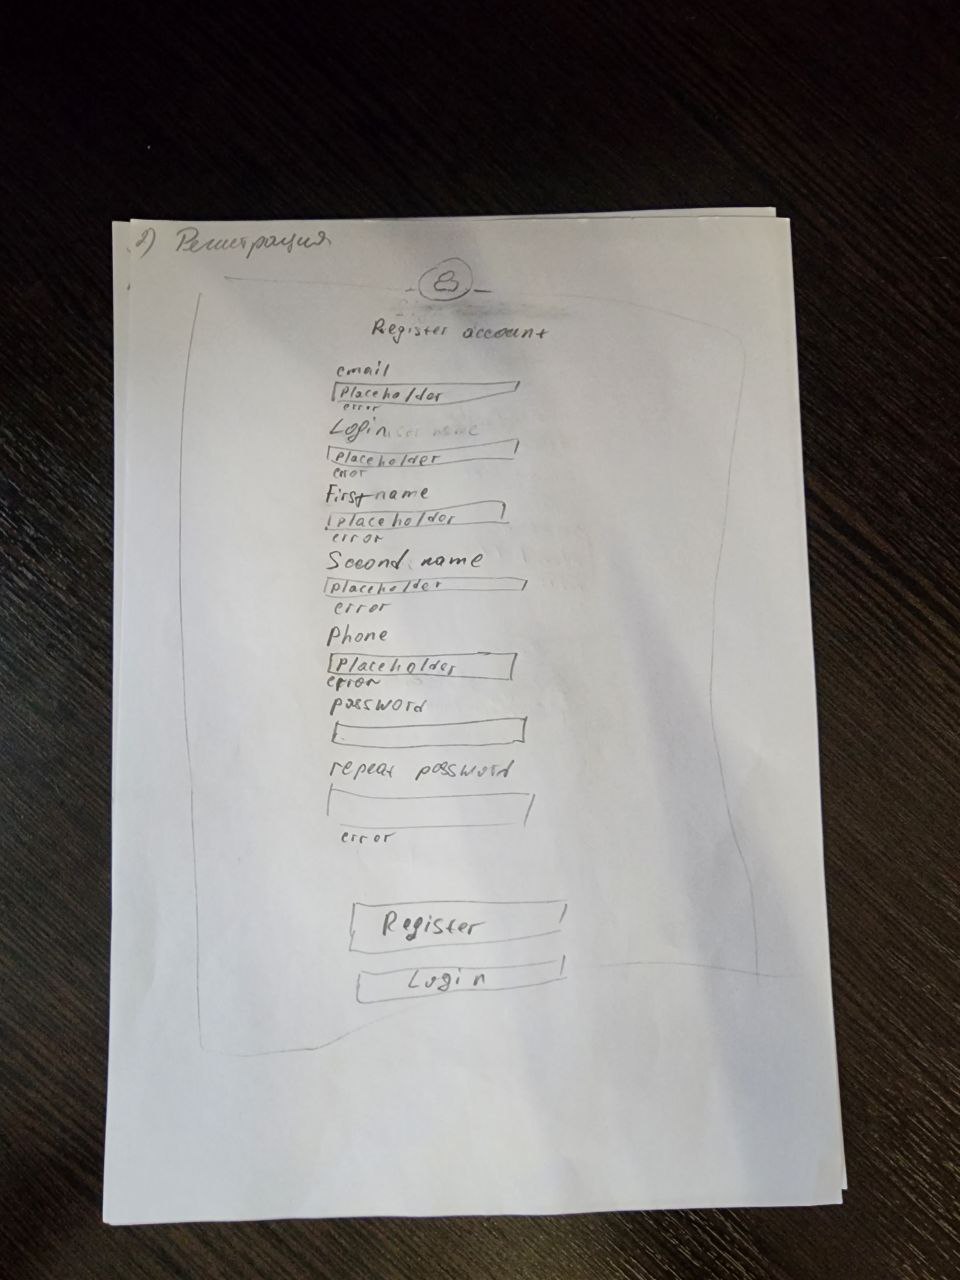 2) Регистрация
Register account
email
Placeholder
error
Login
Placeholder
error
First name
Placeholder
error
Second name
Placeholder
error
Phone
Placeholder
error
password
repeat password
error
Register
Login